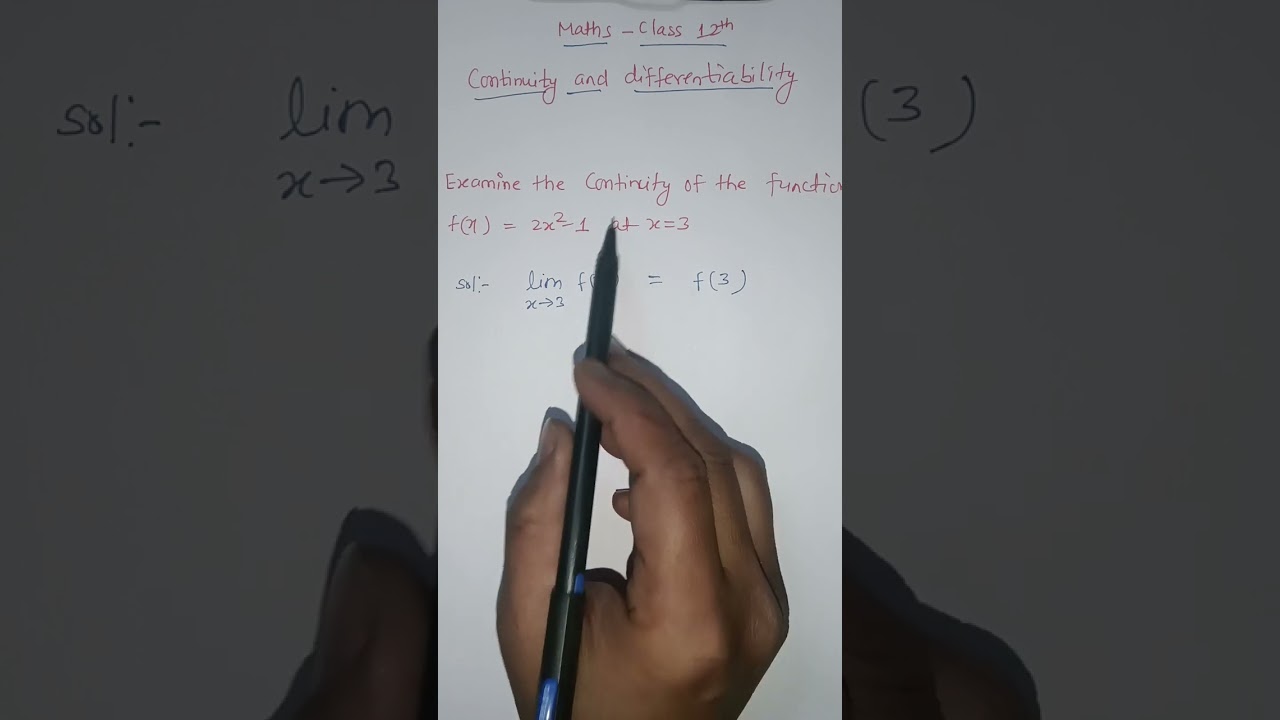 Maths - Class 12th
Continuity and differentiability
Examine the Continuity of the function
f(x) = 2x²-1 at x=3
sol:- lim f( = f(3)
x→3
sol:- lim (3)
x→3